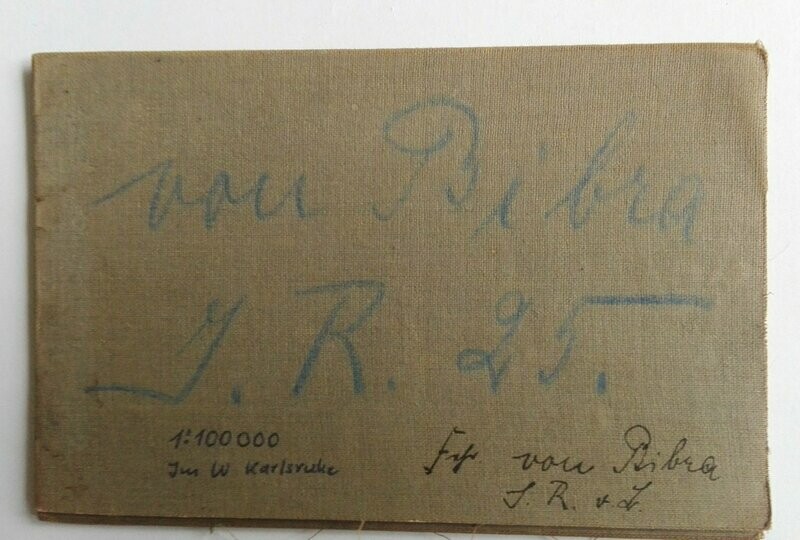 von Bibra
J. R. 25.
1:100000
Im W Karlsruhe
Frhr. von Bibra
J. R. v. L.